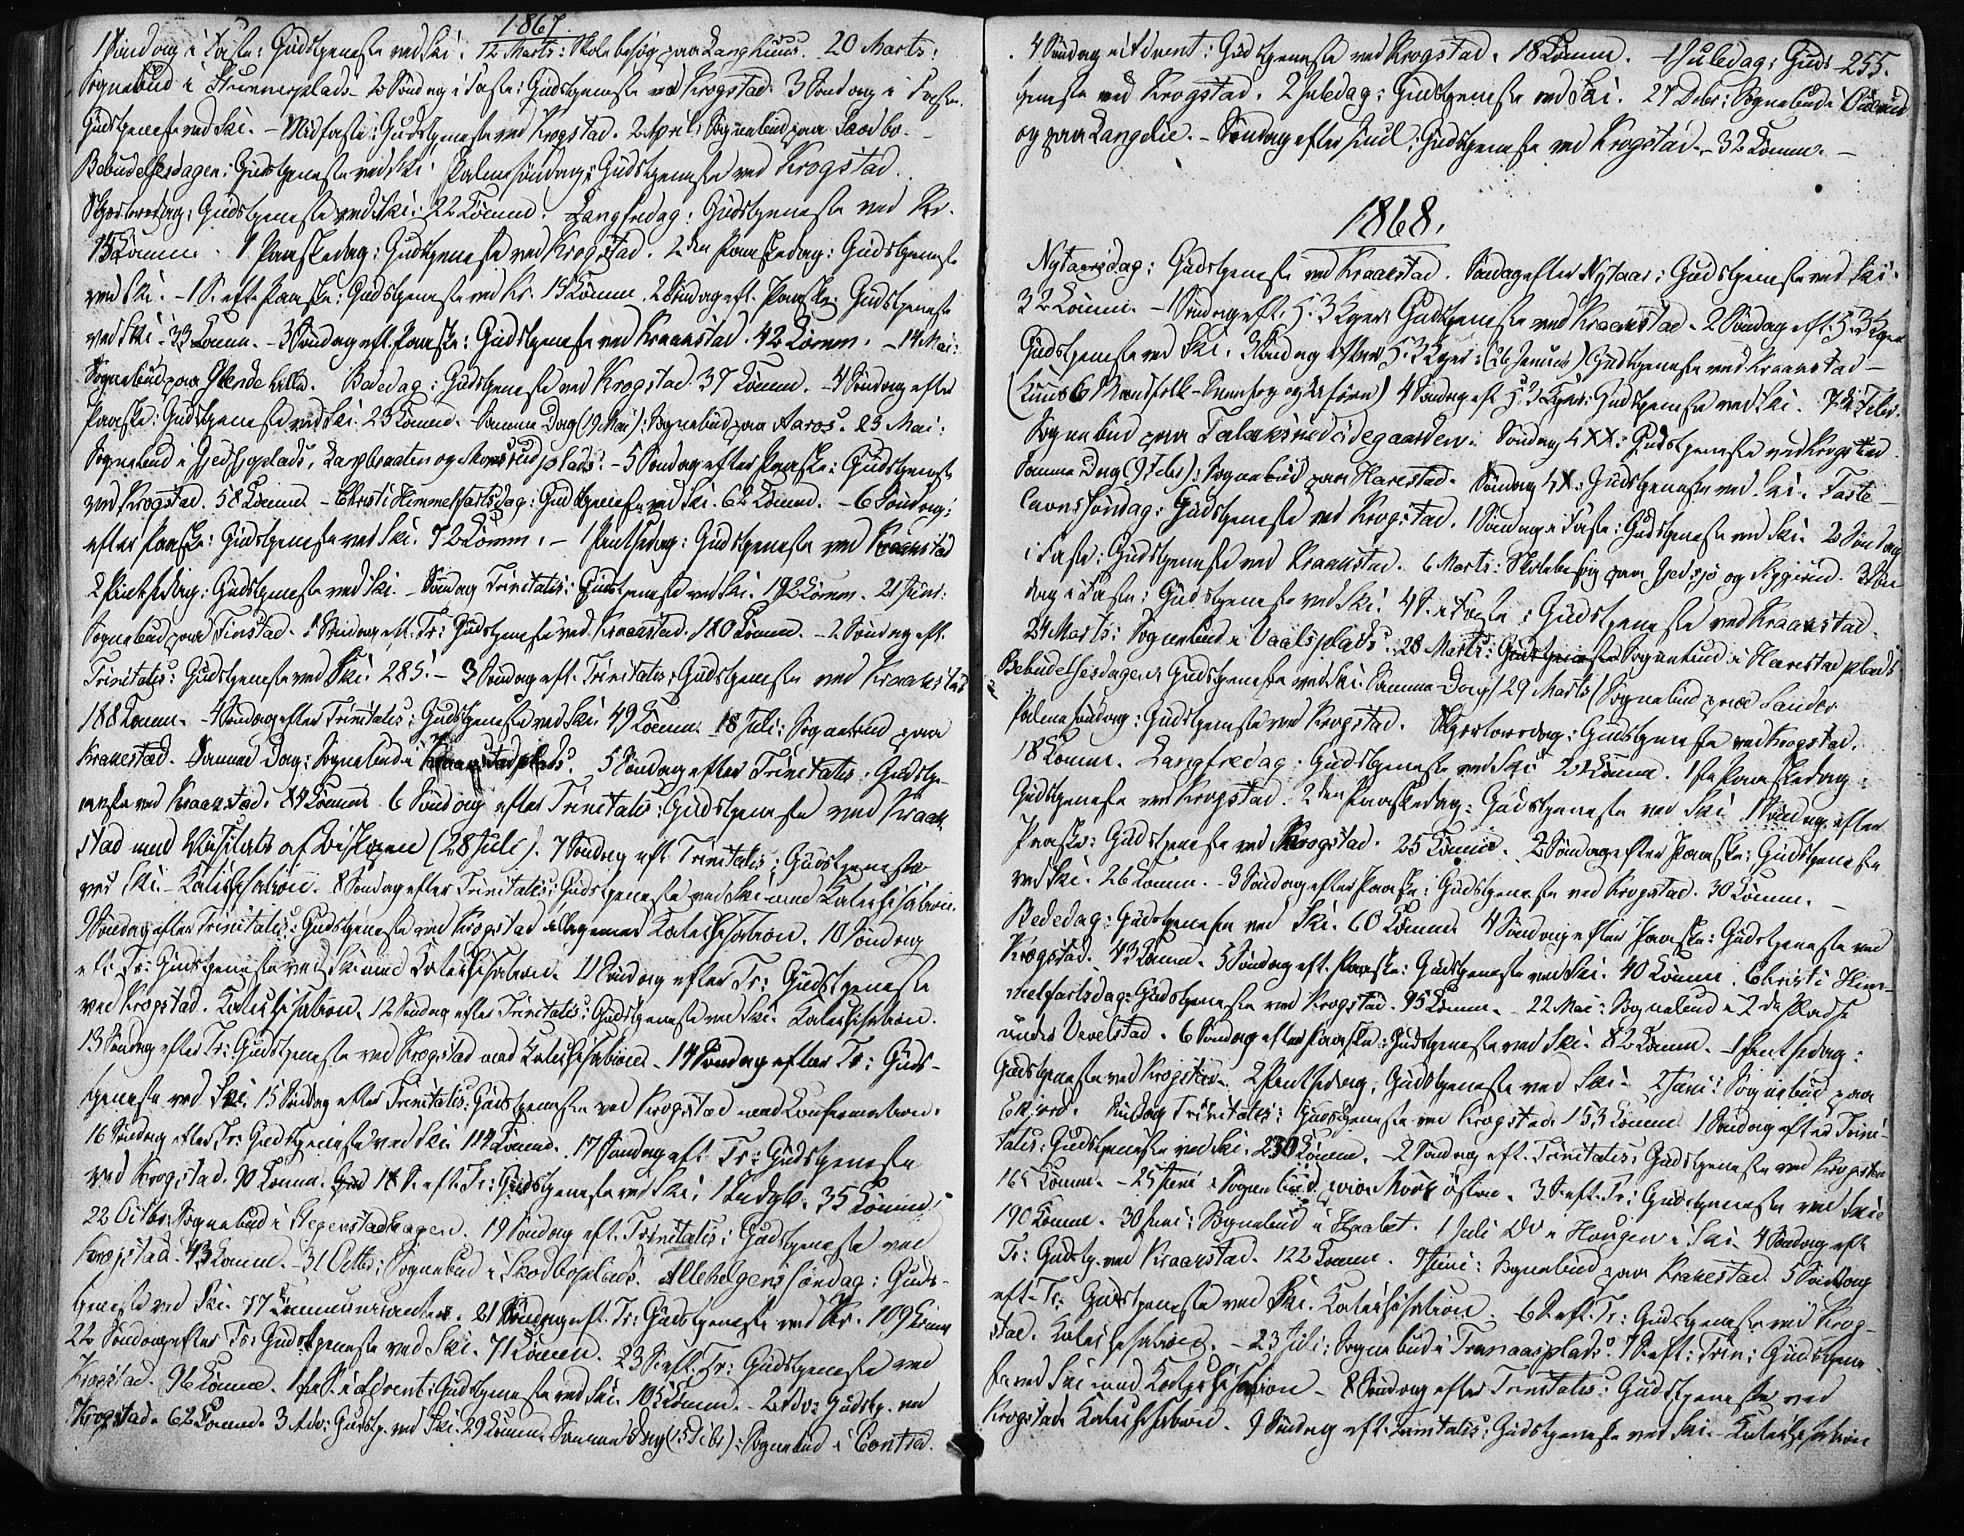 1867.
1 Søndag i Faste: Gudstjeneste ved Ski. 12 Marts: Skolebesøg paa Langhuus. 20 Marts:
Sognebud i plads. 2 Søndag i Faste: Gudstjeneste ved Krogstad. 3 Søndag i Faste.
Gudstjeneste ved Ski. - Midfaste: Gudstjeneste ved Krogstad. 2 April: Sognebud paa Skodbo. -
Bebudelsesdagen: Gudstjeneste ved Ski. Palmesøndag: Gudstjeneste ved Krogstad.
Skjærtorsdag: Gudstjeneste ved Ski: 22 Comm. Langfredag: Gudstjeneste ved Kr.
15 Comm. 1 Paaskedag: Gudstjeneste ved Krogstad. 2den Paaskedag: Gudstjeneste
ved Ski. - 1 S. eft. Paaske: Gudstjeneste ved Kr. 15 Comm. 2 Søndag eft. Paaske: Gudstjeneste
ved Ski. 33 Comm. - 3 Søndag eft. Paaske: Gudstjeneste ved Kraakstad. 42 Comm. - 14 Mai:
Sognebud paa. Bededag: Gudstjeneste ved Krogstad. 37 Comm. - 4 Søndag efter
Paaske: Gudstjeneste ved Ski. 23 Comm. Samme Dag (19 Mai): Sognebud paa Aaros. 23 Mai:
Sognebud i Gjedsjøplads, og plads. - 5 Søndag efter Paaske: Gudstjeneste
ved Krogstad. 58 Comm. - Christi Himmelfartsdag: Gudstjeneste ved Ski. 62 Comm. - 6 Søndag:
efter Paaske: Gudstjeneste ved Ski. 72 Comm. - 1 Pintsedag: Gudstjeneste ved Kraakstad
2 Pintsedag: Gudstjeneste ved Ski. - Søndag Trinitatis: Gudstjeneste ved Ski. 192 Comm. 21 Juni:
Sognebud paa Finstad. 1 Søndag eft. Tr: Gudstjeneste ved Kraakstad. 180 Comm. - 2 Søndag eft.
Trinitatis: Gudstjeneste ved Ski. 285. - 3 Søndag eft. Trinitatis: Gudstjeneste ved Kraakstad
188 Comm. - 4 Søndag efter Trinitatis: Gudstjeneste ved Ski. 49 Comm. 18 Juli: Sognebud paa
Krakestad. Samme Dag: Sognebud i. 5 Søndag efter Trinitatis: Gudstje-
neste ved Kraakstad. 84 Comm. 6 Søndag efter Trinitatis: Gudstjeneste ved Kraak
stad med Visitats af Biskopen (28 Juli). 7 Søndag eft. Trinitatis: Gudstjeneste
ved Ski. Katechisation. 8 Søndag efter Trinitatis: Gudstjeneste ved Ski med Katechisation.
9 Søndag efter Trinitatis: Gudstjeneste ved Krogstad Katechisation. 10 Søndag
eft. Tr: Gudstjeneste ved Ski med Katechisation. 11 Søndag efter Tr: Gudstjeneste
ved Krogstad. Katechisation. 12 Søndag efter Trinitatis: Gudstjeneste ved Ski. Katechisation.
13 Søndag efter Tr: Gudstjeneste ved Krogstad med Katechisation. 14 Søndag efter Tr: Guds-
tjeneste ved Ski. 15 Søndag efter Trinitatis: Gudstjeneste ved Krogstad med Confirmation.
16 Søndag efter Tr: Gudstjeneste ved Ski. 114 Comm. 17 Søndag eft. Tr: Gudstjeneste
ved Krogstad. 90 Comm. 18 S. eft. Tr: Gudstjeneste ved Ski. 35 Comm.
22 Octbr: Sognebud i. 19 Søndag eft. Trinitatis: Gudstjeneste ved
Krogstad. 43 Comm. - 31 Octbr: Sognebud i Skodboplads. Allehelgenssøndag: Guds-
tjeneste ved Ski. 77 Communicanter. 21 Søndag eft. Tr: Gudstjeneste ved Kr. 109 Comm
22 Søndag efter Tr: Gudstjeneste ved Ski. 71 Comm. 23 S. eft. Tr: Gudstjeneste ved
Krogstad. 96 Comm. 1ste S. i Advent: Gudstjeneste ved Ski. 105 Comm. - 2 Adv: Gudstj. ved
Krogstad. 62 Comm. 3 Adv: Gudstj. ved Ski. 29 Comm. Samme Dag (15 Dcbr): Sognebud i Contra.
255.
4 Søndag i Advent: Gudstjeneste ved Krogstad. 18 Comm. 1 Juledag: Guds
tjeneste ved Krogstad. 2 Juledag: Gudstjeneste ved Ski. 27 Debr: Sognebud i
og paa Langelie. - Søndag efter Juul: Gudstjeneste ved Krogstad. 32 Comm. -
1868.
Nytaarsdag: Gudstjeneste ved Kraakstad. Søndag efter Nytaar: Gudstjeneste ved Ski.
32 Comm. - 1 Søndag eft. H. 3 Kger: Gudstjeneste ved Kraakstad. 2 Søndag eft. H. 3 Kger
Gudstjeneste ved Ski. 3 Søndag efter H. 3 Kger: (26 Januar) Gudstjeneste ved Kraakstad -
(Kuns 6 Mandfolk - Snefog og Uføre) 4 Søndag eft H. 3 Kger: Gudstjeneste ved Ski. 7de Febr.
Sognebud paa. Søndag LXX: Gudstjeneste ved Krogstad
Samme Dag (9 Febr): Sognebud paa Harestad. Søndag LX: Gudstjeneste ved Ski. Faste-
lavnssøndag: Gudstjeneste ved Krogstad. 1 Søndag i Faste: Gudstjeneste ved Ski. 2 Søndag
i Faste: Gudstjeneste ved Kraakstad. 6 Marts: Skolebesøg paa Gjedsjø og Siggerud. 3 Søn
dag i Faste: Gudstjeneste ved Ski. 4 S. i Faste: Gudstjeneste ved Kraakstad.
24 Marts: Sognebud i Vaalsplads. 28 Marts: Gudstjeneste Sognebud i Harestad plads
Bebudelsesdagen: Gudstjeneste ved Ski. Samme Dag (29 Marts) Sognebud paa Sander
Palmesøndag: Gudstjeneste ved Krogstad. Skjærtorsdag: Gudstjeneste ved Krogstad.
18 Comm. Langfredag: Gudstjeneste ved Ski 21 Comm. 1ste Paaskedag:
Gudstjeneste ved Krogstad. 2den Paaskedag: Gudstjeneste ved Ski. 1 Søndag efter
Paaske: Gudstjeneste ved Krogstad. 25 Comm. 2 Søndag efter Paaske: Gudstjeneste
ved Ski. 26 Comm. - 3 Søndag efter Paaske: Gudstjeneste ved Krogstad. 30 Comm. -
Bededag: Gudstjeneste ved Ski. 60 Comm. 4 Søndag efter Paaske: Gudstjeneste ved
Krogstad. 43 Comm. 5 Søndag eft. Paaske: Gudstjeneste ved Ski. 40 Comm. Christi Him-
melfartsdag: Gudstjeneste ved Krogstad. 95 Comm. - 22 Mai: Sognebud i 2de Pladse
under Vevelstad. 6 Søndag efter Paaske: Gudstjeneste ved Ski. 82 Comm. - 1 Pintsedag:
Gudstjeneste ved Krogstad. 2 Pintsedag: Gudstjeneste ved Ski. 2 Juni: Sognebud paa
. Søndag Trinitatis: Gudstjeneste ved Krogstad. 153 Comm. 1 Søndag efter Trini-
tatis: Gudstjeneste ved Ski. 230 Comm. - 2 Søndag eft. Trinitatis: Gudstjeneste ved Krogstad
165 Comm. - 25 Juni: Sognebud paa Mork østre. 3 S. eft. Tr: Gudstjeneste ved Ski
190 Comm. 30 Juni: Sognebud i Haabet. 1 Juli Do i Haugen i Ski. 4 Søndag eft
Tr: Gudstj. ved Kraakstad. 122 Comm. Sognebud paa Krakestad. 5 Søndag
eft. Tr: Gudstjeneste ved Ski. Katechisation. 6 S. eft. Tr: Gudstjeneste ved Krog-
stad. Katechisation. - 23 Juli: Sognebud i Tranaasplads. 7 S. eft: Trin: Gudstjene
ste ved Ski med Katechisation - 8 Søndag efter Trinitatis: Gudstjeneste ved
Krogstad. Katechisation. 9 Søndag eft. Trinitatis: Gudstjeneste ved Ski. - Katechisation